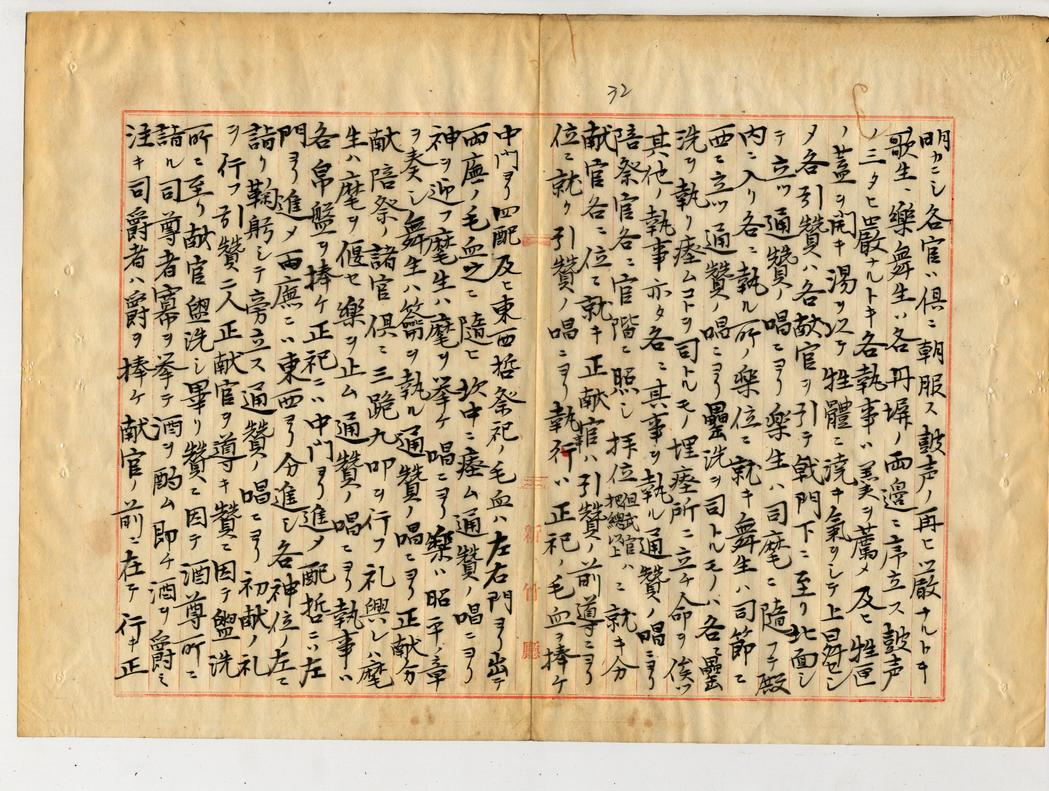 32
明カニシ各官ハ俱ニ朝服ス鼓声ノ再ヒ嚴ナルトキ
歌生、樂舞生ハ各丹墀ノ両邊ニ序立ス鼓声
ノ三タヒ嚴ナルトキ各執事ハ羹ヲ薦メ及ヒ牲匣
ノ蓋ヲ開キ湯ヲ以テ牲體ニ澆キ氣ヲシテ上昇セシ
メ各引贊ハ各献官ヲ引テ戟門下ニ至リ北面シ
テ立ツ通贊ノ唱ニヨリ樂生ハ司麾ニ随フテ殿
内ニ入リ各ニ執ル所ノ樂位ニ就キ舞生ハ司節ニ
西ニ立ツ通贊ノ唱ニヨリ罍洗ヲ司トルモノハ各罍
洗ヲ執リ瘞ムコトヲ司トルモノ埋瘞所ニ立チ命ヲ俟ツ
其他ノ執事亦タ各ニ其事ヲ執ル通贊ノ唱ニヨリ
陪祭官各ニ官階ニ照シ拝位但武官ハ把總以上ニ就キ分
献官各ニ位ニ就キ正献官ハ引贊ノ前導ニヨリ
位ニ就ク引贊ノ唱ニヨリ執事ハ正祀ノ毛血ヲ捧ケ
新竹廳
中門ヨリ四配及ヒ東西哲祭祀ノ毛血ハ左右門ヨリ出テ
両廡ノ毛血之ニ随ヒ坎中ニ瘞ム通贊ノ唱ニヨリ
神ヲ迎フ麾生ハ麾ヲ挙ケ唱ニヨリ樂ハ昭平ノ章
ヲ奏シ舞生ハ籥ヲ執ル通贊ノ唱ニヨリ正献分
献陪祭ノ諸官俱ニ三跪九叩ヲ行フ礼興レハ麾
生ハ麾ヲ偃セ樂ヲ止ム通贊ノ唱ニヨリ執事ハ
各帛盤ヲ捧ケ正祀ハ中門ヨリ進メ配哲ハ左
門ヨリ進メ両廡ハ東西ヨリ分進シ各神位ノ左ニ
詣リ鞠躬シテ旁立ス通贊ノ唱ニヨリ初献ノ礼
ヲ行フ引贊二人正献官ヲ導キ贊ニ因テ盥洗
所ニ至リ献官盥洗シ畢リ贊ニ因テ酒尊所ニ
詣ル司尊者冪ヲ挙テ酒ヲ酌ム即チ酒ヲ爵ニ
注キ司爵者ハ爵ヲ捧ケ献官ノ前ニ在テ行キ正